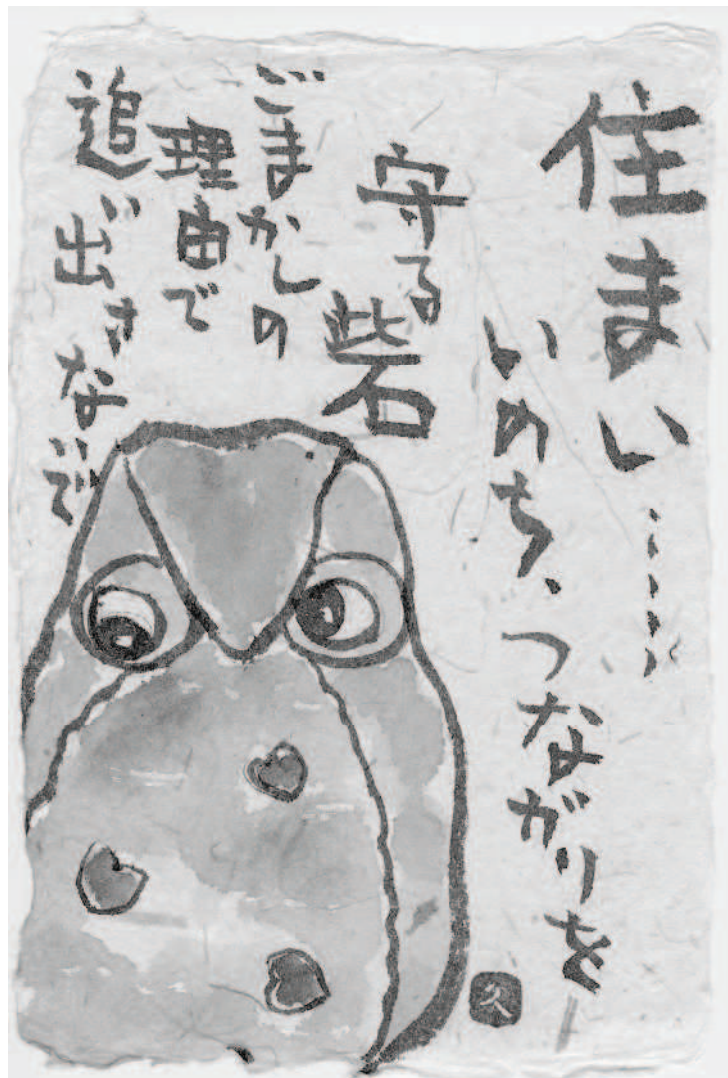 住まい……
いのち、つながりを
守る砦
ごまかしの
理由で
追い出さないで
久